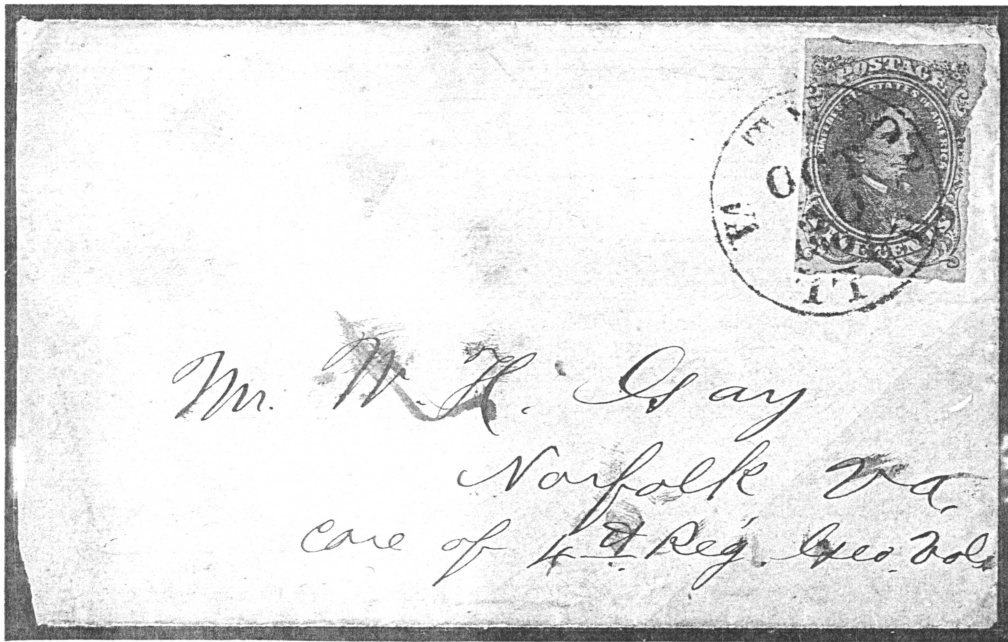 POSTAGE
CONFEDERATE STATES OF AMERICA
CENTS
OCT
VA
Mr. W. H. Gay
Norfolk Va.
care of 4th Reg. Geo. Vols